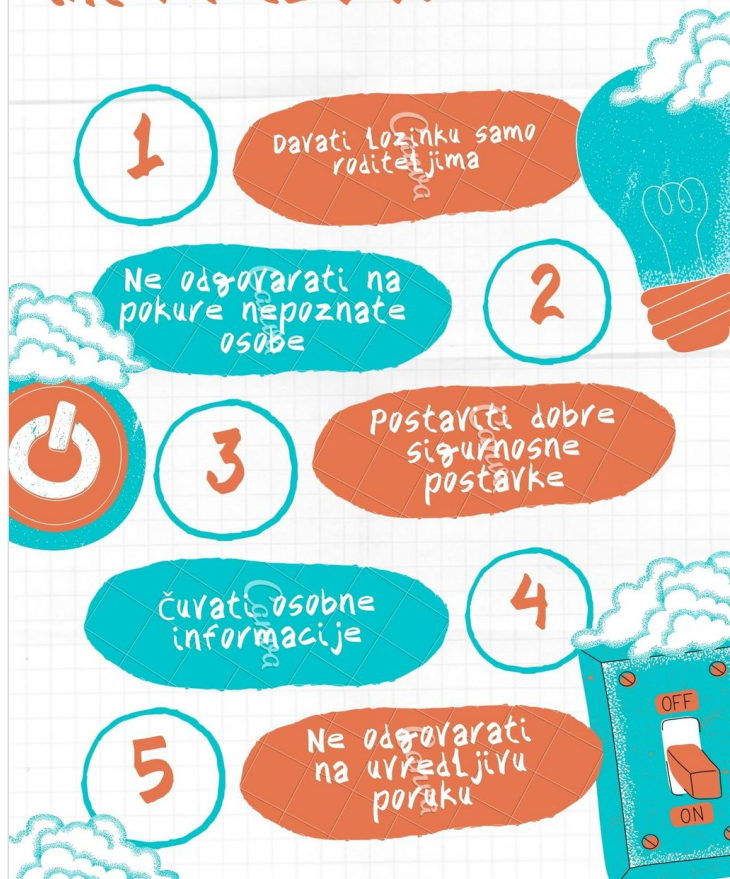 1
Davati lozinku samo
roditeljima
Ne odgovarati na
pokure nepoznate
osobe
2
3
Postaviti dobre
sigurnosne
postavke
Čuvati osobne
informacije
4
5
Ne odgovarati
na uvredljivu
poruku
OFF
ON
Canva
Canva
Canva
Canva
Canva